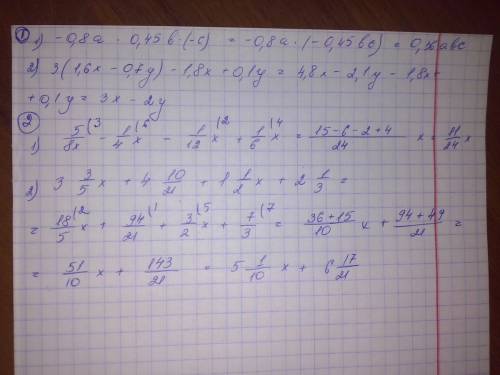 ① 1) -0,8a · 0,45b·(-c) = -0,8a · (-0,45bc) = 0,36abc
2) 3(1,6x - 0,7y) - 1,8x + 0,1y = 4,8x - 2,1y - 1,8x +
+ 0,1y = 3x - 2y
②
1) 5/8x (3 - 1/4 x (6 - 1/12 x (2 + 1/6 x (4 = (15-6-2+4)/24 x = 11/24 x
2) 3 3/5 x + 4 10/21 + 1 1/2 x + 2 1/3 =
= 18/5 (2 x + 94/21 (1 + 3/2 (5 x + 7/3 (7 = (36+15)/10 x + (94+49)/21 =
= 51/10 x + 143/21 = 5 1/10 x + 6 17/21